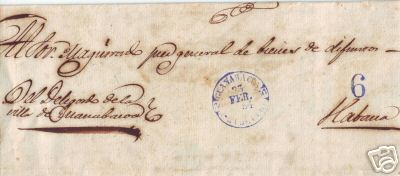 Al Sor. Magistrado juez general de bienes de difuntos
Del Delegdo de la
villa de Guanabacoa
GUANABACOA
25
FEB.
6
Habana
eBay